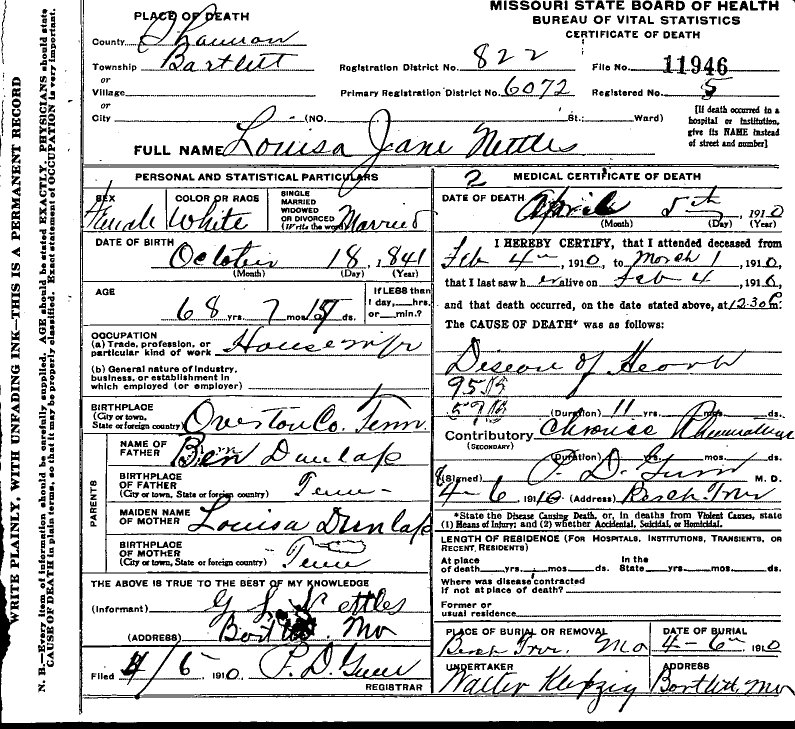 MISSOURI STATE BOARD OF HEALTH
BUREAU OF VITAL STATISTICS
CERTIFICATE OF DEATH
PLACE OF DEATH
County Shannon
Township Bartlett
or
Village
or
City (NO. St.; Ward)
Registration District No. 822 File No. 11946
Primary Registration District No. 6072 Registered No. 5
[If death occurred in a hospital or institution, give its NAME instead of street and number]
FULL NAME Louisa Jane Nettles
PERSONAL AND STATISTICAL PARTICULARS
SEX Female
COLOR OR RACE White
SINGLE MARRIED WIDOWED OR DIVORCED (Write the word) Married
DATE OF BIRTH October 18, 1841
(Month) (Day) (Year)
AGE 68 yrs. 7 mos. ds.
If LESS than 1 day,___hrs. or___min.?
OCCUPATION
(a) Trade, profession, or particular kind of work Housewife
(b) General nature of industry, business, or establishment in which employed (or employer)
BIRTHPLACE
(City or town, State or foreign country) Overton Co. Tenn.
PARENTS
NAME OF FATHER Ben Dunlap
BIRTHPLACE OF FATHER
(City or town, State or foreign country) Tenn
MAIDEN NAME OF MOTHER Louisa Dunlap
BIRTHPLACE OF MOTHER
(City or town, State or foreign country) Tenn
THE ABOVE IS TRUE TO THE BEST OF MY KNOWLEDGE
(Informant) G L Nettles
(ADDRESS) Bartlett Mo
Filed 4/6 1910 P. D. Gunn
REGISTRAR
2 MEDICAL CERTIFICATE OF DEATH
DATE OF DEATH April 5th, 1910
(Month) (Day) (Year)
I HEREBY CERTIFY, that I attended deceased from
Feb 4th, 1910, to March 1, 1910,
that I last saw her alive on Feb 4, 1910,
and that death occurred, on the date stated above, at 12.30 P.
The CAUSE OF DEATH* was as follows:
Disease of Heart
95B
(Duration) 11 yrs. mos. ds.
Contributory Chronic Rheumatism
(SECONDARY)
(Duration) yrs. mos. ds.
(Signed) P. D. Gunn M. D.
4-6 1910 (Address) Birch Tree
*State the Disease Causing Death, or, in deaths from Violent Causes, state
(1) Means of Injury; and (2) whether Accidental, Suicidal, or Homicidal.
LENGTH OF RESIDENCE (For Hospitals, Institutions, Transients, or Recent Residents)
At place of death yrs. mos. ds. In the State yrs. mos. ds.
Where was disease contracted
If not at place of death?
Former or
usual residence
PLACE OF BURIAL OR REMOVAL Birch Tree, Mo
DATE OF BURIAL 4-6th 1910
UNDERTAKER Walter Klepzig
ADDRESS Bartlett, Mo
WRITE PLAINLY, WITH UNFADING INK—THIS IS A PERMANENT RECORD
N. B.—Every item of information should be carefully supplied. AGE should be stated EXACTLY. PHYSICIANS should state
CAUSE OF DEATH in plain terms, so that it may be properly classified. Exact statement of OCCUPATION is very important.